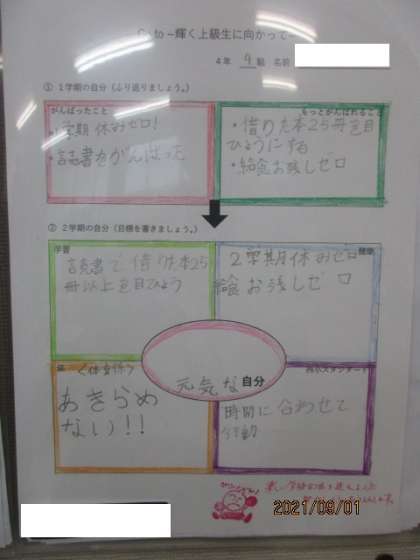 to −輝く上級生に向かって−
4年 組 名前
① 1学期の自分(ふり返りましょう。)
がんばったこと
・1学期休みゼロ!
・読書をがんばった
もっとがんばれること
・借りた本25冊を目
ひょうにする
・給食お残しゼロ
② 2学期の自分(目標を書きましょう。)
学習
読書で借りた本25
冊以上を目ひょう
健康
2学期休みゼロ
給食お残しゼロ
元気な自分
<体育係>
あきらめ
ない!!
スタンダード
時間に合わせて
行動
2021/09/01